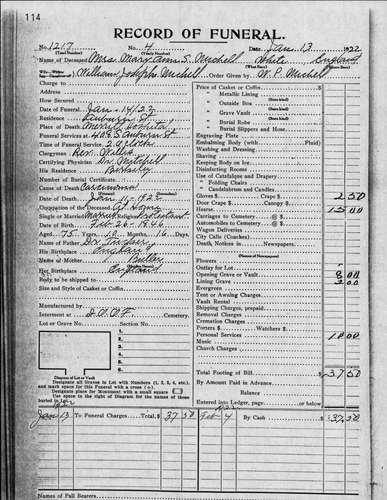 114
RECORD OF FUNERAL.
No. 1217 No. 4 Date Jan 13 1922
(Total Number) (Yearly Number)
Name of Deceased Mrs. Mary Ann S. Michell White England
(What Race) (Where Born)
William Joseph Michell Order Given by W. P. Michell
Charge to
Address
How Secured
Date of Funeral Jan - 14/22
Residence
Place of Death
Funeral Services at
Time of Funeral Service 2 o'clock
Clergyman Rev. Willis
Certifying Physician Dr.
His Residence Berkeley
Number of Burial Certificate
Cause of Death Carcinoma
Date of Death Jan 11 - 1922
Occupation of the Deceased At Home
Single or Married Married Religion Protestant
Date of Birth Feb - 26 - 1846
Aged 75 Years 10 Months 16 Days
Name of Father
His Birthplace England
Name of Mother Butler
(Maiden Name)
Her Birthplace England
Body to be shipped to
Size and Style of Casket or Coffin
Manufactured by
Interment at I.O.O.F. Cemetery.
Lot or Grave No. Section No.
1
2
3
4
5
6
Diagram of Lot or Vault
Designate all Graves in Lot with Numbers (1, 2, 3, 4, etc.)
and mark space for this Funeral with a cross (+).
Designate place for Monument with a small square
Use space to the right of Diagram for the names of those
buried in Lot.
Price of Casket or Coffin
Metallic Lining
(State kind)
Outside Box
(State kind)
Grave Vault
(State kind)
Burial Robe
(State kind)
Burial Slippers and Hose
Engraving Plate
Embalming Body (with Fluid)
Washing and Dressing
Shaving
Keeping Body on Ice
Disinfecting Rooms
Use of Catafalque and Drapery
" Folding Chairs
" Candelabrum and Candles
Gloves $ Crape $ 2 50
Door Crape $ Canopy $
Hearse 15 00
Carriages to Cemetery @ $
Automobiles to Cemetery @ $
Wagon Deliveries
City Calls (Coaches)
Death, Notices in Newspapers
(Names of Newspapers)
Flowers
Outlay for Lot
Opening Grave or Vault 8 00
Lining Grave 2 00
Evergreen
Tent or Awning Charges
Vault Rental
Shipping Charges, prepaid
Removal Charges
Cremation Charges
Porters $ Watchers $
Personal Services 10 00
Music
Church Charges
Total Footing of Bill $37 50
By Amount Paid in Advance
Balance
Entered into Ledger, page or below.
1922 Jan 13 To Funeral Charges Total, $ 37 50 1922 Feb 4 By Cash $37.50
Names of Pall Bearers